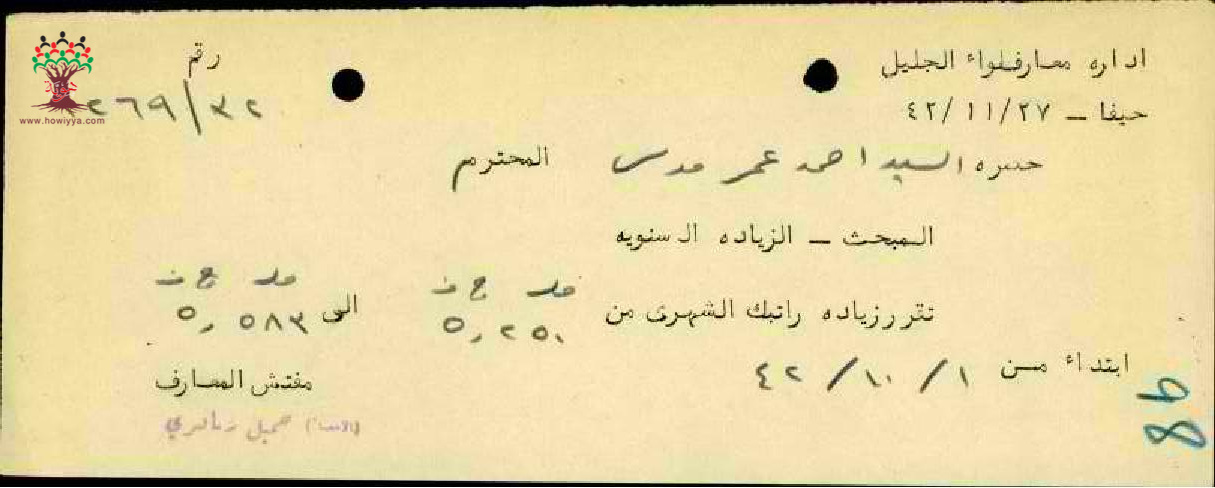 اداره معارف لواء الجليل
رقم
حيفا ـ ٤٢/١١/٢٧
٢٦٩/٣٢
www.howiyya.com
حضره السيد احمد عمر مدرس المحترم
المبحث ـ الزياده السنويه
مل ج ف مل ج ف
تقرر زياده راتبك الشهرى من ٥,٢٥٠ الى ٥,٥٨٣
ابتداء من ١/١٠/٤٢
مفتش المعارف
(الامضاء) جميل